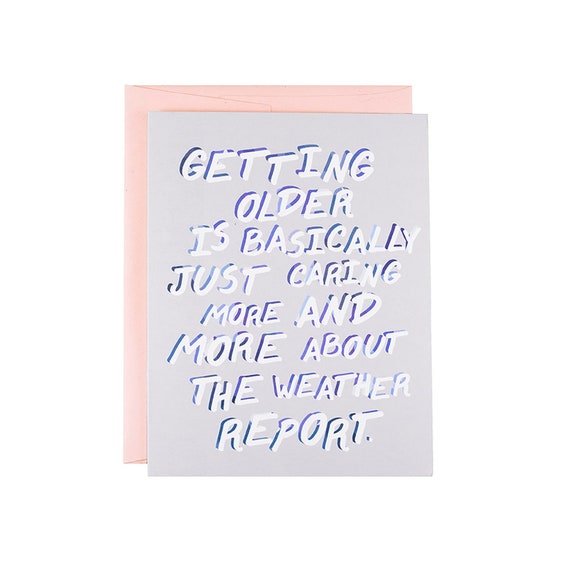 GETTING
OLDER
IS BASICALLY
JUST CARING
MORE AND
MORE ABOUT
THE WEATHER
REPORT.